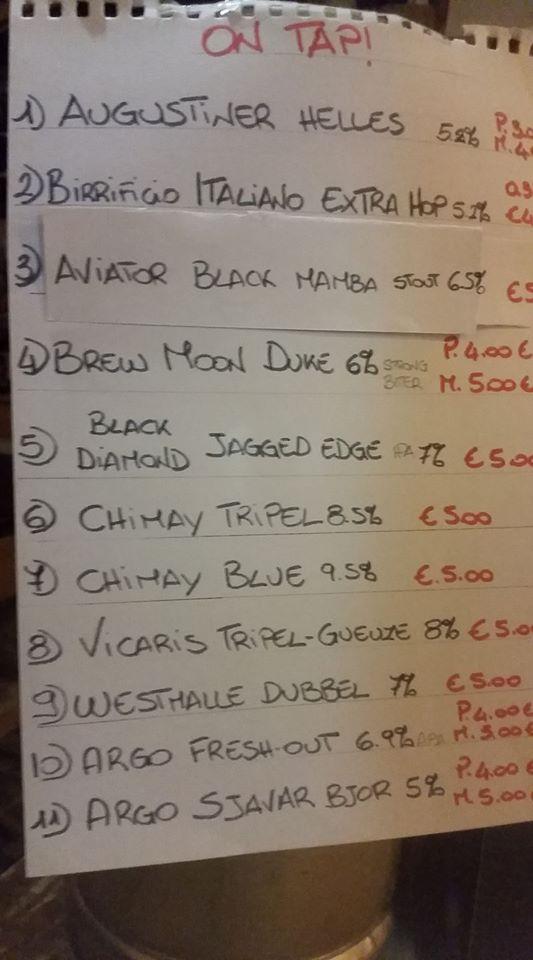 ON TAP!
1) AUGUSTINER HELLES 5.2% P.
M.
2) BIRRIFICIO ITALIANO EXTRA HOP 5.2%
3) AVIATOR BLACK MAMBA STOUT 6.5% €5
4) BREW MOON DUKE 6% STRONG BITTER P. 4.00 €
M. 5.00 €
5) BLACK DIAMOND JAGGED EDGE IPA 7% € 5.00
6) CHIMAY TRIPEL 8.5% € 5.00
7) CHIMAY BLUE 9.5% €. 5.00
8) VICARIS TRIPEL-GUEUZE 8% € 5.0
9) WESTMALLE DUBBEL 7% € 5.00
10) ARGO FRESH-OUT 6.9% APA P. 4.00 €
M. 5.00 €
11) ARGO SJAVAR BJOR 5% P. 4.00 €
M. 5.00 €